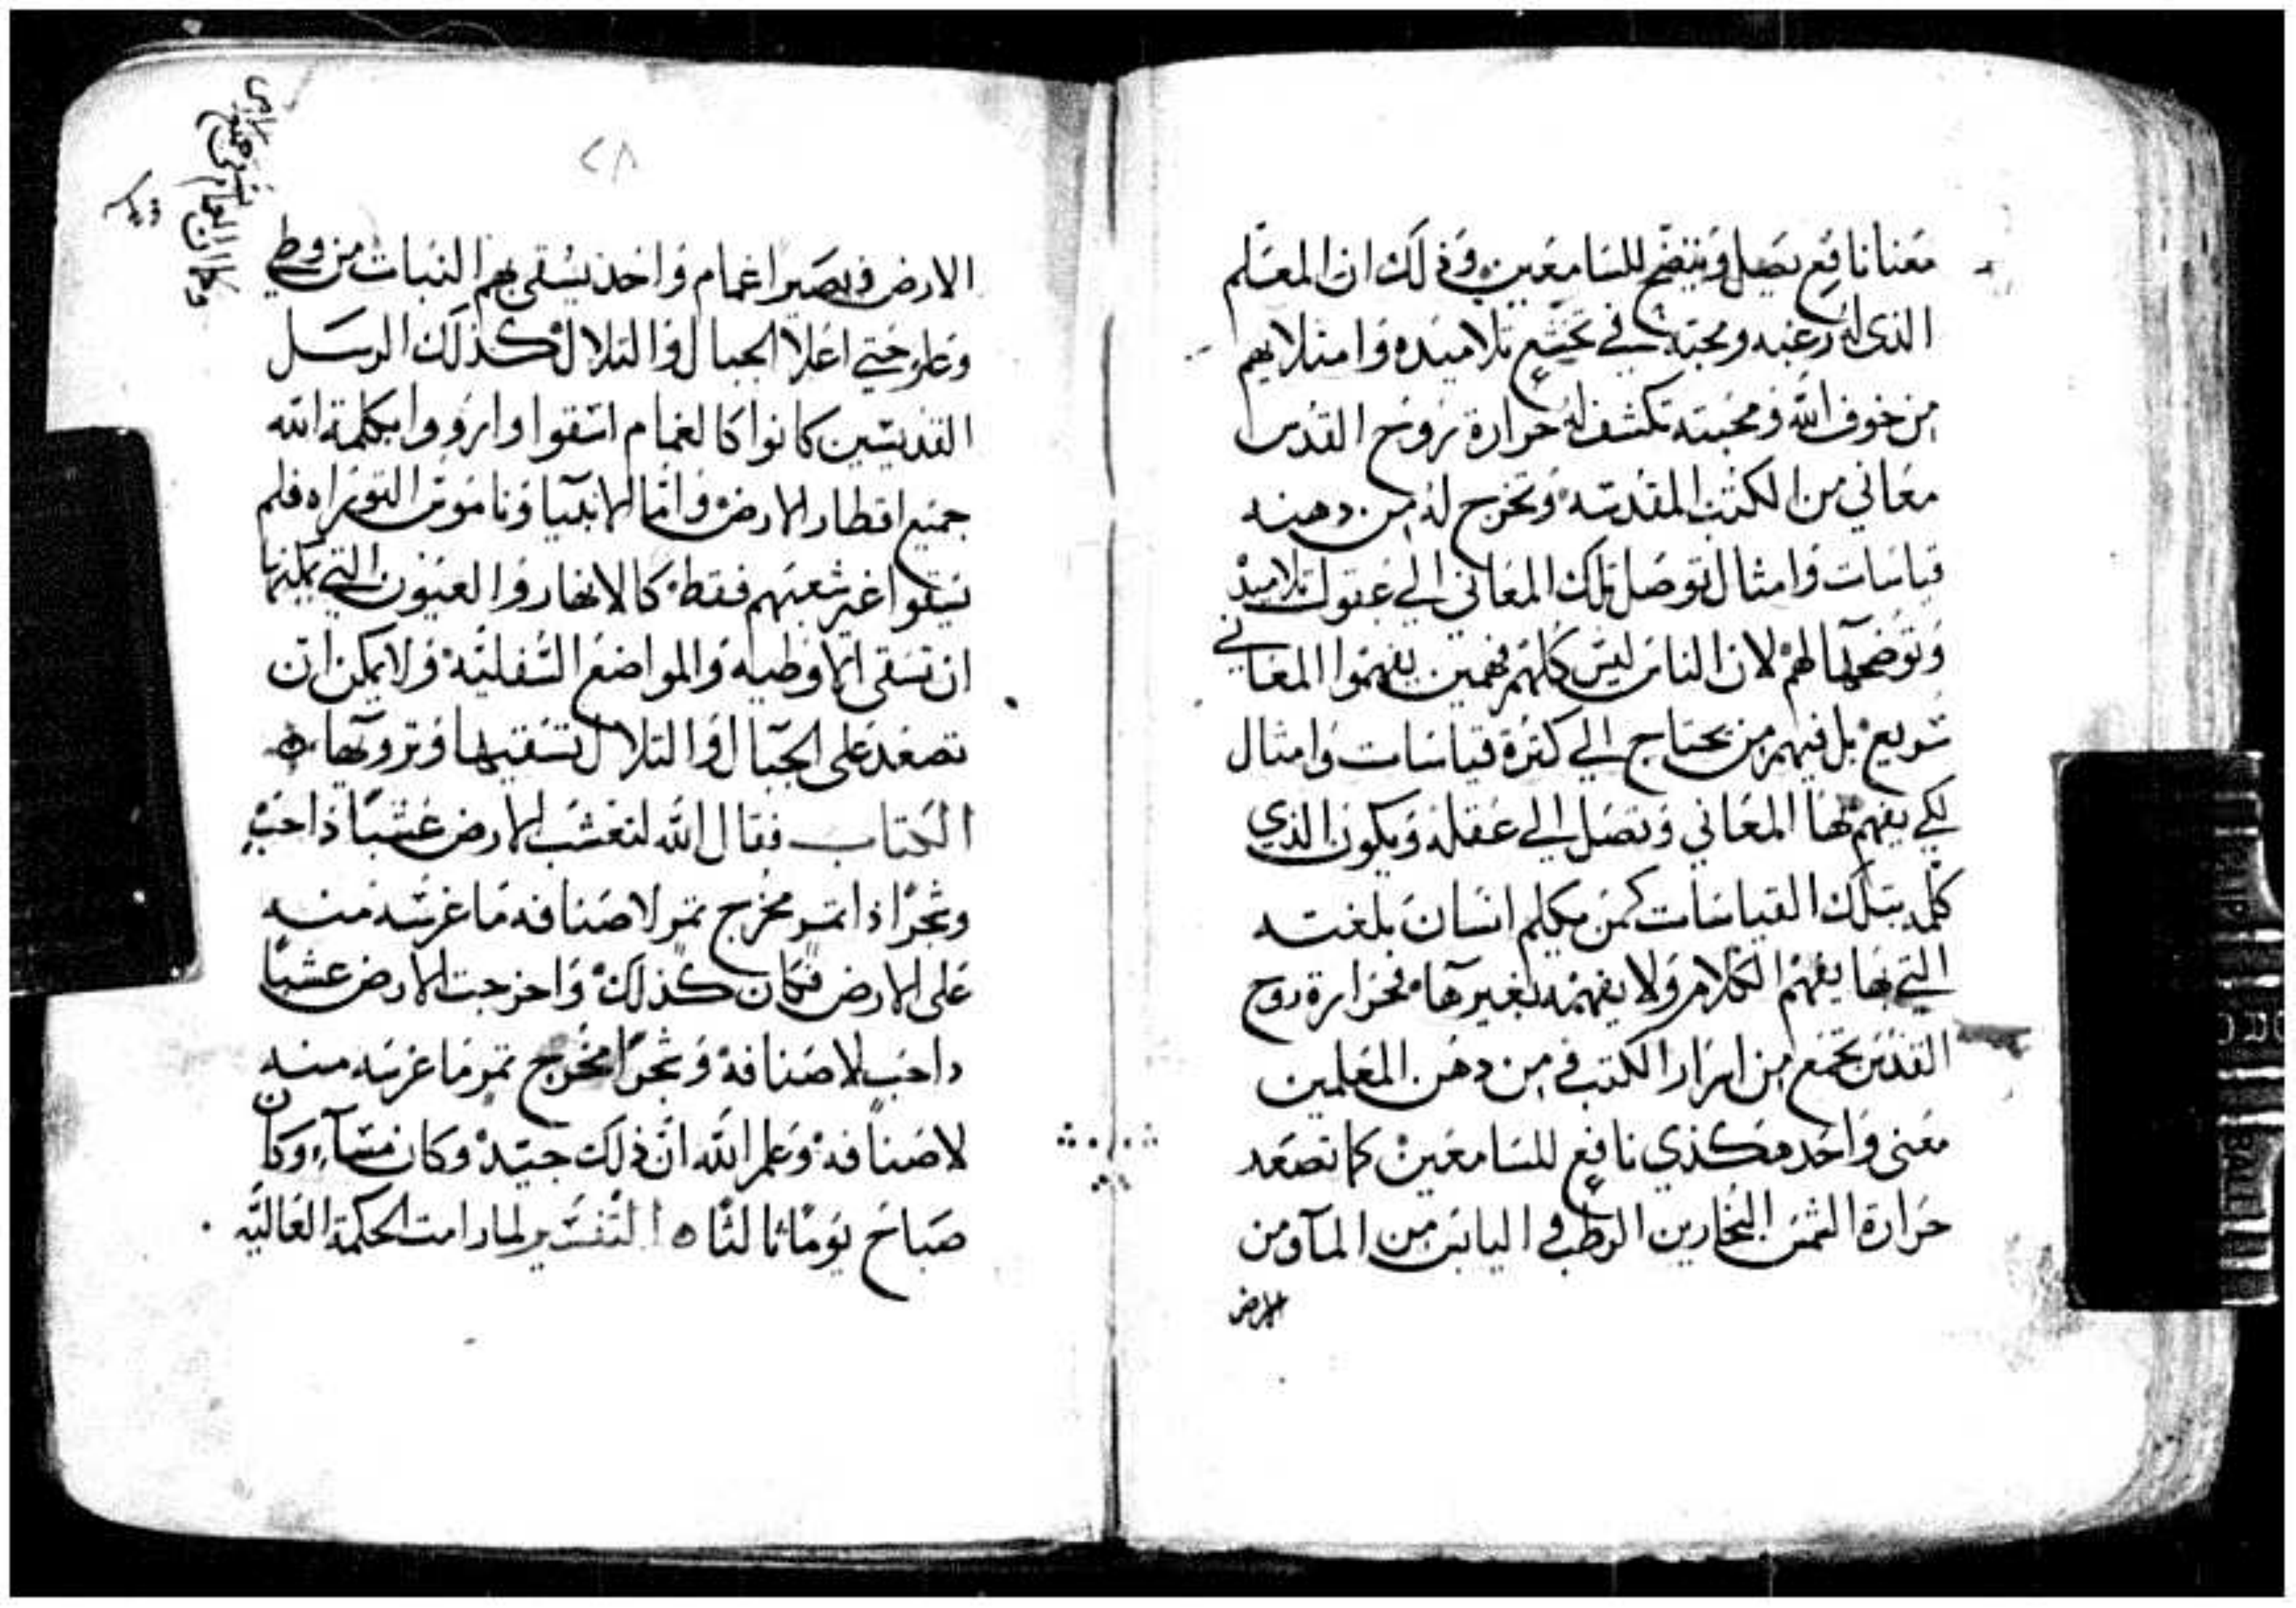 معنا نافع يصل ويتضح للسامعين وذلك ان المعلم
الذي له رغبه ومحبه في تخشع تلاميده وامتلايهم
من خوف الله ومحبته تكشف له حرارة روح القدس
معاني من الكتب المقدسه وتخرج له من دهنه
قياسات وامثال توصل تلك المعاني الي عقول تلاميذ
وتوضحها لهم لان الناس ليس كلهم فهمين يفهموا المعاني
سريع بل فيهم من يحتاج الي كثرة قياسات وامثال
لكي يفهم بها المعاني وتصل الي عقله ويكون الذي
كلمه بتلك القياسات كمن يكلم انسان بلغته
التي بها يفهم الكلام ولا يفهمه بغيرها فحرارة روح
القدس تجمع من اسرار الكتب و من دهن المعلمين
معنى واحد مكذي نافع للسامعين كما تصعد
حرارة الشمس البخارين الرطب و اليابس من المآ ومن
الارض
٢٨
الارض ويصير اغمام واخذ يسقي بهم النبات من وطي
وعلو حتي اعلا الجبال والتلال كذلك الرسل
القديسين كانوا كالغمام اسقوا وارووا بكلمة الله
جميع اقطار الارض واما الانبيا وناموس التوراه فلم
يسقوا غير شعبهم فقط كالانهار والعيون التي يمكنها
ان تسقي الاوطيه والمواضع السفليه ولا يمكن ان
تصعد على الجبال والتلال تسقيها وترويها ه
الكتاب فقال الله لتعشب الارض عشبًا ذا حب
وشجرًا ذا ثمر مخرج ثمر لاصنافه ما غرسه منه
على الارض فكان كذلك واخرجت الارض عشبًا
داحب لاصنافه وشجرًا مخرج ثمر ما غرسه منه
لاصنافه وعلم الله ان ذلك جيد وكان مسآء وكان
صباح يومًا ثالثًا ه التفسير لما رامت الحكمة العاليه